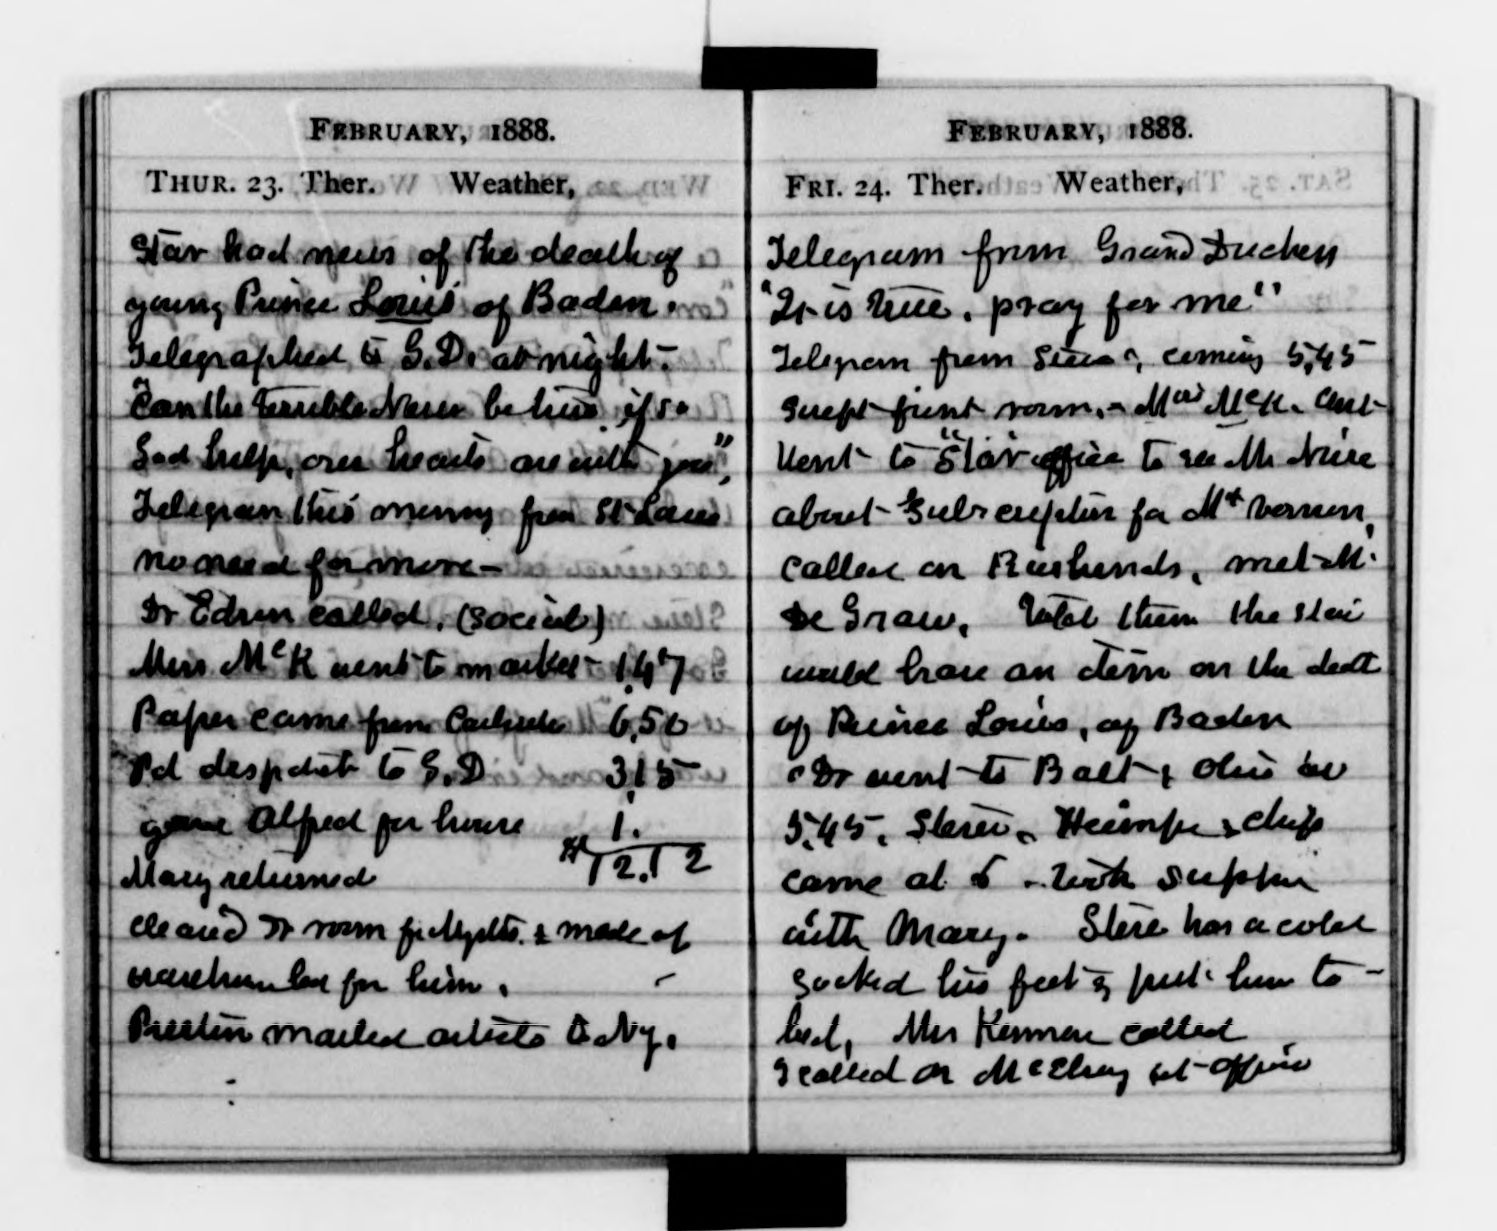 FEBRUARY, 1888.
THUR. 23. Ther. Weather,
Star had news of the death of
young Prince Louis of Baden.
Telegraphed to G.D. at night-
"Can the terrible News be true, if so
God help, our hearts are with you",
Telegram this morning from St Louis
no need for more -
Dr Edson called, (social)
Miss McK went to market - 1.47
Paper came from 6.50
Pd despatch to G.D 3.15
gave Alfred for house 1.
Mary returned 12.12
cleaned Dr room & made up
bed for him.
mailed to NY.
FEBRUARY, 1888.
FRI. 24. Ther. Weather,
Telegram from Grand Duchess
"It is true. pray for me"
Telegram from coming 5,45
Swept front room. - Mrs McK. cut
Went to "Star office to see Mr Noise
about Subscription for Mt Vernon,
called on met Mr
De Graw. told them the star
would have an item on the death
of Prince Louis, of Baden
Dr went to Balt & Ohio at
5.45. & chip
came at 6 - took supper
with Mary. Steve has a cold
soaked his feet & put him to -
bed, Mrs called
I called on McElroy at office